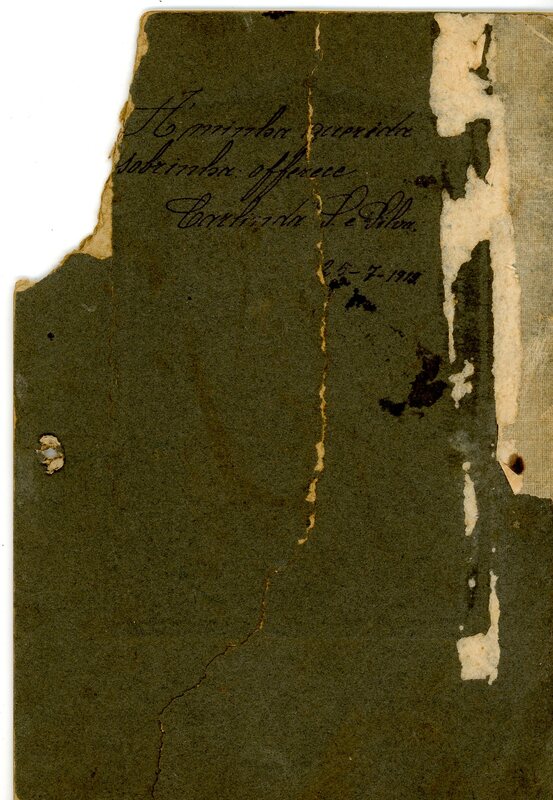 A' minha querida
sobrinha offerece
S. e Silva.
25-7-1918